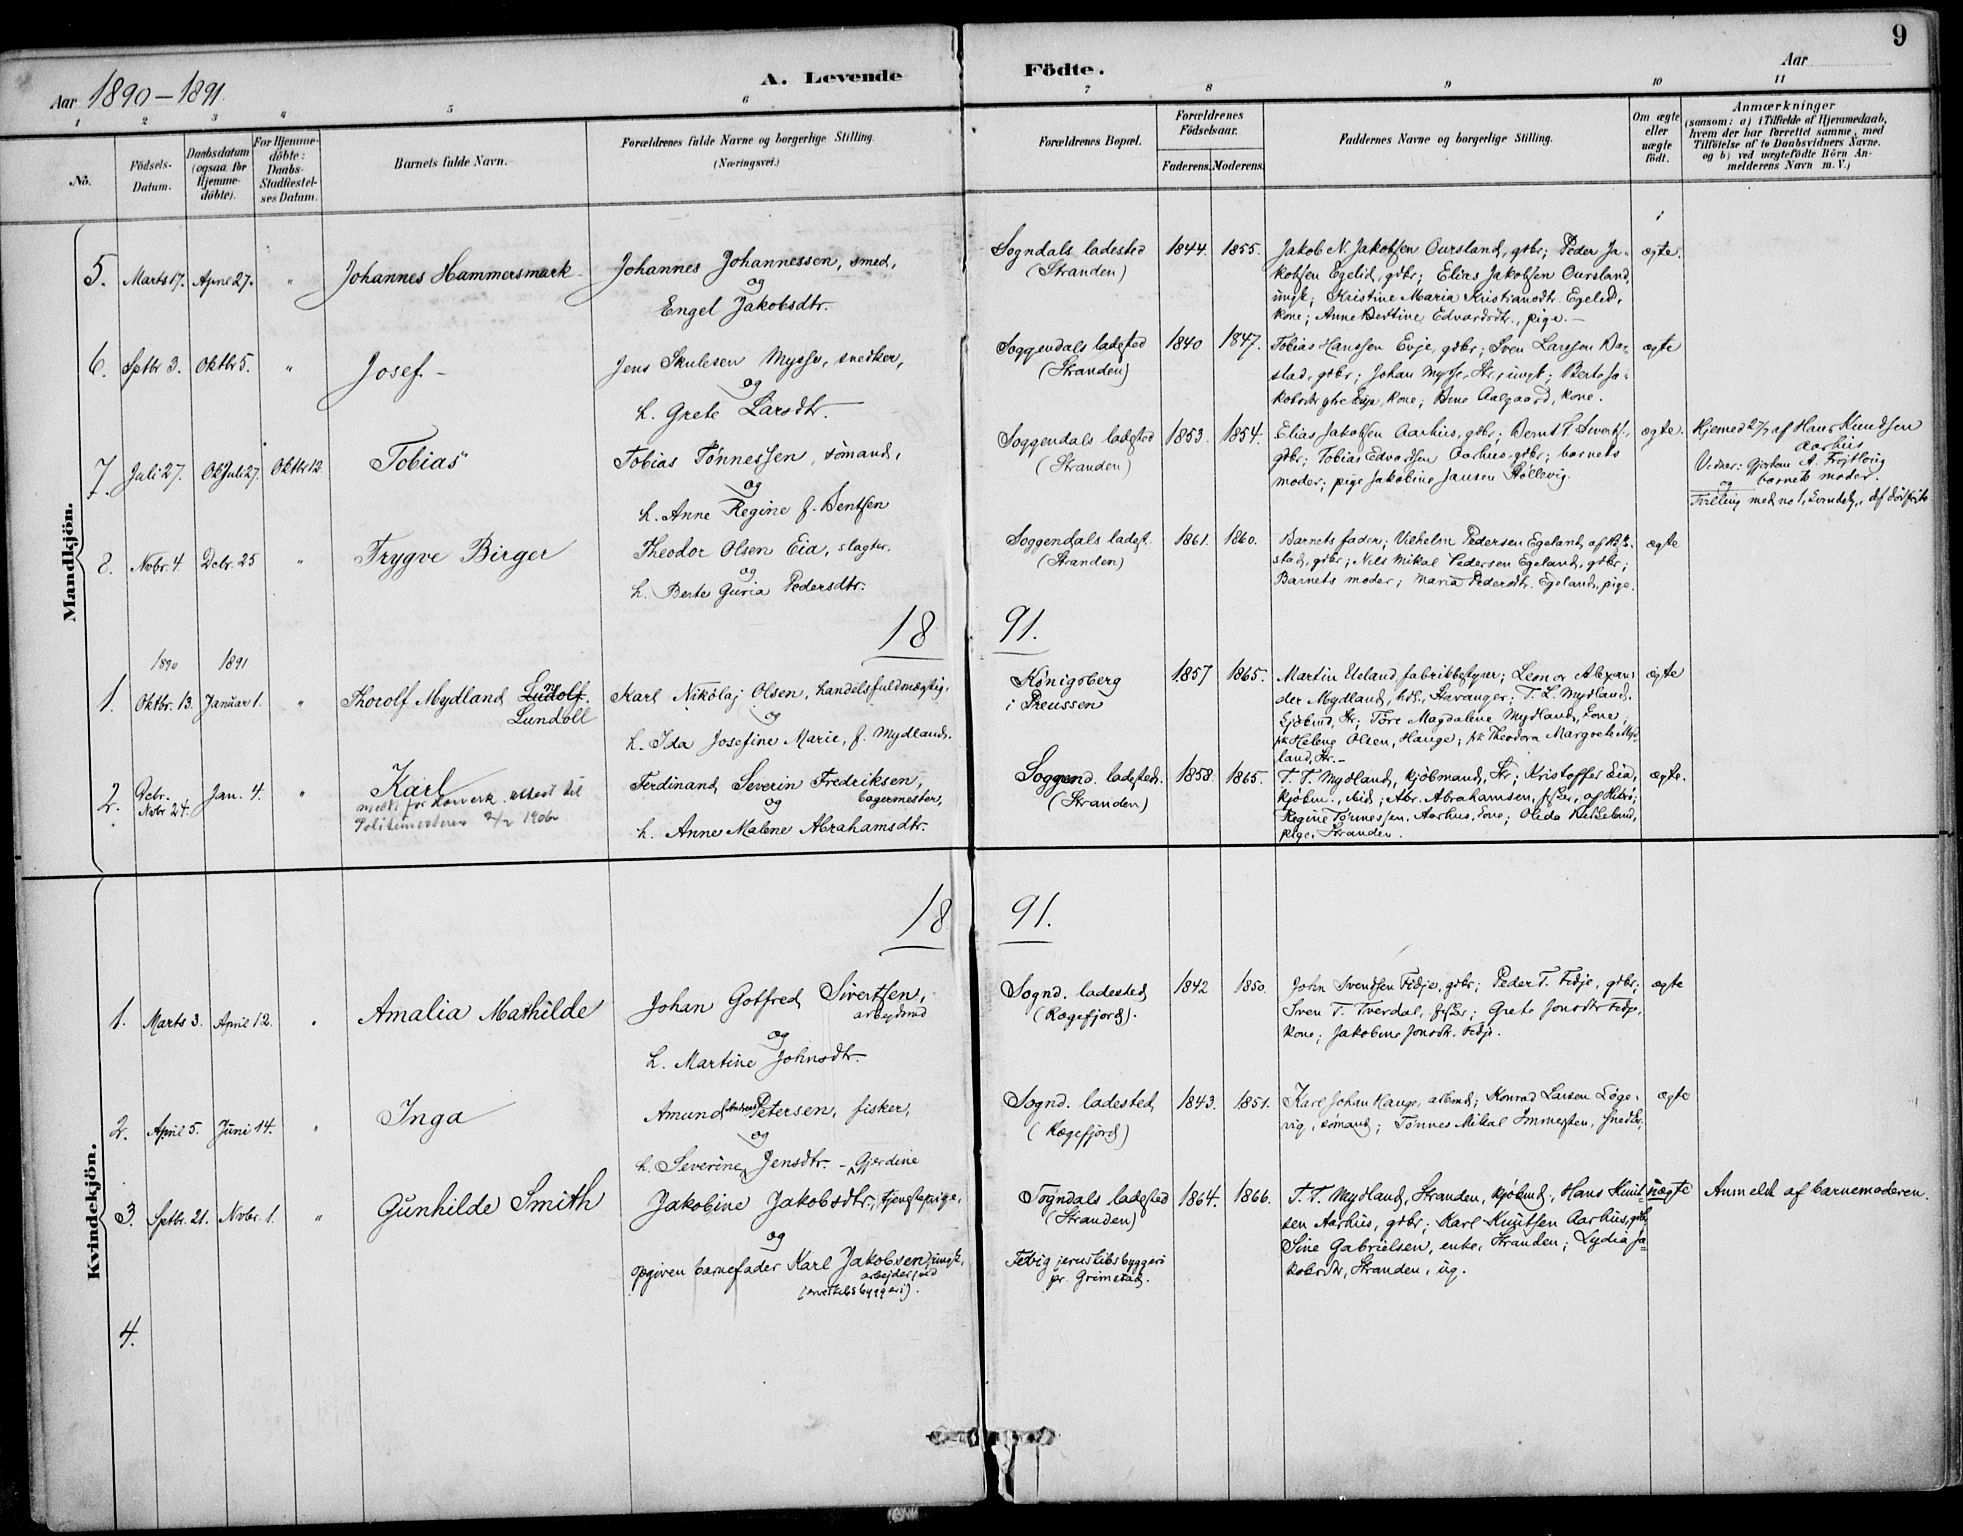 9
Aar 1890-1891
A. Levende Födte.
Aar
1 2 3 4 5 6 7 8 9 10 11
No.
Födsels-Datum.
Daabsdatum (ogsaa for Hjemme-döbte).
For Hjemme-döbte: Daabs-Stadfæstel-ses Datum.
Barnets fulde Navn.
Forældrenes fulde Navne og borgerlige Stilling.
(Næringsvei.)
Forældrenes Bopæl.
Forældrenes Födselsaar.
Faderens. Moderens.
Faddernes Navne og borgerlige Stilling.
Om ægte eller uægte födt.
Anmærkninger
(saasom: a) i Tilfælde af Hjemmedaab,
hvem der har forrettet samme, med
Tilföielse af to Daabsvidners Navne.
og b) ved uægtefödte Börn An-
melderens Navn m. V.)
Mandkjön.
5. Marts 17. April 27. " Johannes Hammersmark
Johannes Johannessen, smed,
og
Engel Jakobsdtr.
Sogndals ladested
(Stranden)
1844. 1855.
Jakob N. Jakobsen Oursland, gdbr; Peder Ja-
kobsen Egelid, gdbr; Elias Jakobsen Oursland,
ungk; Kristine Maria Kristiansdtr. Egelid,
kone; Anne Bertine Edvardsdtr., pige. -
ægte.
6. Sptbr 3. Oktbr 5. " Josef. -
Jens Skulesen Mysse, snedker,
og
h. Grete Larsdtr.
Soggendals ladested
(Stranden)
1840 1847.
Tobias Hanssen Evje, gdbr; Sven Larssen
stad, gdbr; Johan Mysse, Str., ungk; Berte Ja-
kobsdtr Evje, kone; Bine Aalgaard, kone.
ægte
7. Juli 27. Juli 27. Oktbr 12 Tobias
Tobias Tønnessen, sømand,
og
h. Anne Regine f. Bentsen
Soggendals ladested
(Stranden)
1853. 1854.
Elias Jakobsen Aarhus, gdbr; Bernt T. Siverts.,
gdbr; Tobias Edvardsen Aarhus, gdbr; barnets
moder; pige Jakobine Jansen Støllevig.
ægte.
Hjemmed 27/7 af Hans Knudsen
Aarhus
Vidner: Gjordem. A. Frøitlong
og barnets moder.
Tvilling med no 1, kvindekj., af dødfødte
8. Novbr. 4. Decbr. 25 " Trygve Birger
Theodor Olsen Eia, slagter,
og
h. Berte Guria Pedersdtr.
Soggendals ladest.
(Stranden)
1861. 1860.
Barnets fader; Vilhelm Pedersen Egeland,
stad, gdbr; Nils Mikal Pedersen Egeland, gdbr;
Barnets moder; Maria Pedersdtr. Egeland, pige.
ægte
18 91.
1890 1891
1. Oktbr. 13. Januar 1. " Thorolf Mydland Lundolf.
Lundoll
Karl Nikolaj Olsen, handelsfuldmægtig,
og
h. Ida Josefine Marie, f. Mydland.
Königsberg
i Preussen
1857 1865.
Martin Ueland, fabrikbestyrer; Leonor Alexan-
der Mydland, hdl., Stavanger; T. L. Mydland,
kjøbmd, Str; Tore Magdalene Mydland, kone;
frk Helene Olsen, Hauge; frk Theodora Margrete Myd-
land, Str. -
ægte
2. Dcbr. Novbr 24. Jan. 4. " Karl
attest til
Politimesteren 2/2 1906
Ferdinand Severin Fredriksen,
og bagermester,
h. Anne Malene Abrahamsdtr.
Soggend. ladested.
(Stranden)
1858. 1865.
T. T. Mydland, kjøbmand, Str; Kristoffer Eia,
kjøbm., ibid; Abr. Abrahamsen, fisker, af Hidrø;
Regine Tønnessen, Aarhus, kone; Oleda
pige, Stranden.
ægte.
Kvindekjön.
18 91.
1. Marts 3. April 12. " Amalia Mathilde
Johan Gotfred Sivertsen,
arbejdsmd
og
h. Martine Johnsdtr.
Sognd. ladested
(Rægefjord).
1842 1850.
John Svendsen Fidje, gdbr; Peder T. Fidje, gdbr;
Sven T. Tverdal, fisker; Grete Jonsdtr Fidje,
kone; Jakobine Jonsdtr. Fidje.
ægte
2. April 5. Juni 14. " Inga
Amund Andreas Petersen, fisker,
og
h. Severine Jensdtr. - Gjerdine
Sognd. ladested
(Rægefjord)
1843. 1851.
Karl Johan Hauge, arbmd; Konrad Larsen Løge-
vig, sømand; Tønnes Mikal Immersten, snedker,
ægte
3. Sptbr. 21. Novbr. 1. " Gunhilde Smith
Jakobine Jakobsdtr., tjenestepige,
og
opgiven barnefader Karl Jakobsen, ungk.,
arbejder ved
jernskibsbyggeri).
Sogndals ladested
(Stranden)
Fevig jernskibsbyggeri
pr. Grimstad.
1864. 1866.
T. T. Mydland, Stranden, kjøbmd; Hans Knut-
sen Aarhus, gdbr; Karl Knutsen Aarhus, gdbr,
Sine Gabrielsen, enke, Stranden; Lydia Ja-
kobsdtr, Stranden, ug.
uægte
Anmeldt af barnemoderen.
4.